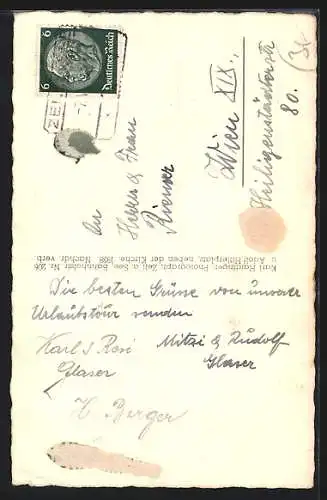 6 Deutsches Reich 6
ZEL
An
Herrn & Frau
Wien XIX.,
Heiligenstädterstr
80.
Karl Haidinger, Photograph, Zell a. See, Bahnhofstr. Nr. 206
u. Adolf Hitlerplatz, neben der Kirche. 1938 Nachdr. verb.
Die besten Grüsse von unserer
Urlaubstour senden
Karl & Resi Mitzi & Rudolf
Glaser Glaser
Berger